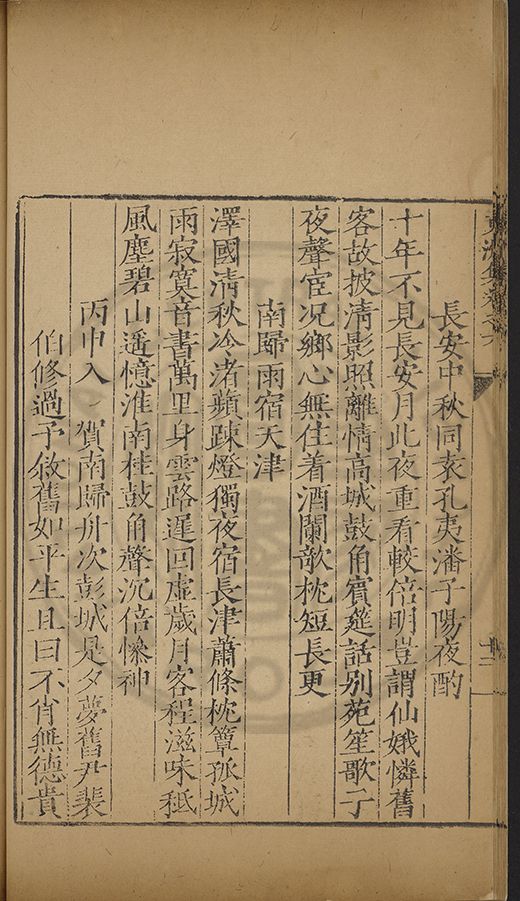 長安中秋同袁孔夷潘子陽夜酌
十年不見長安月此夜重看較倍明豈謂仙娥憐舊
客故披淸影照離情高城鼓角賓筵話別苑笙歌子
夜聲宦况鄉心無住着酒闌欹枕短長更
南歸雨宿天津
澤國淸秋冷渚蘋踈燈獨夜宿長津蕭條枕簟孤城
雨寂寞音書萬里身雲路遲回虛歲月客程滋味秪
風塵碧山遥憶淮南桂鼓角聲沉倍愴神
丙申入 賀南歸舟次彭城是夕夢舊尹裴
伯修過予敘舊如平生且曰不肖無德貴